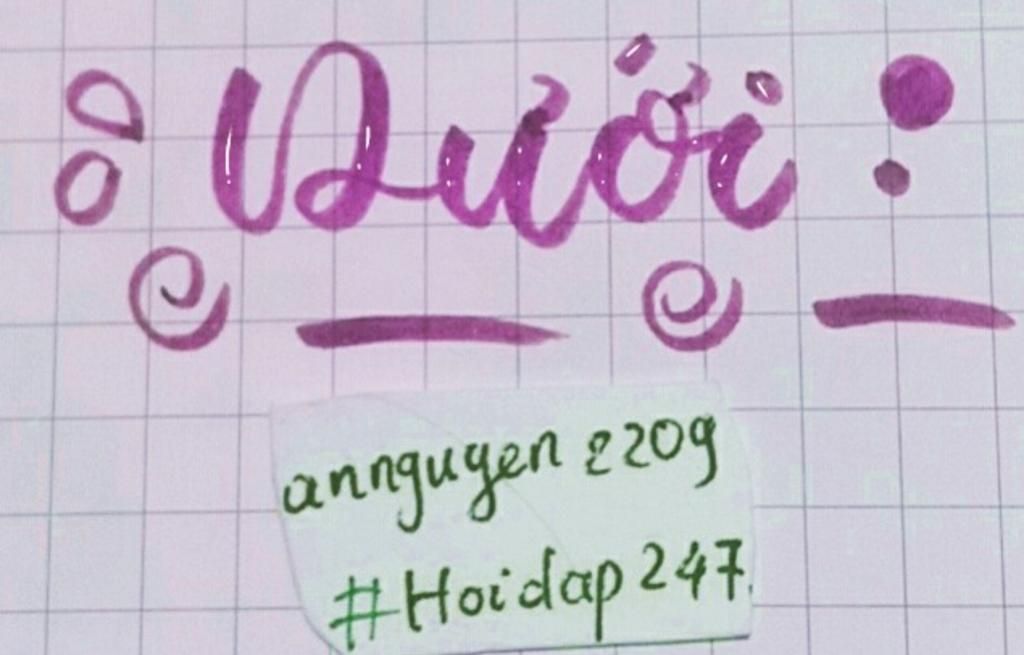 Dưới
annguyen2209
#Hoidap247